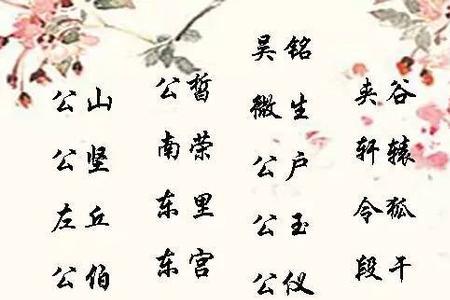 公山
公坚
左丘
公伯
公皙
南荣
东里
东宫
吴铭
微生
公户
公玉
公仪
夹谷
轩辕
令狐
段干